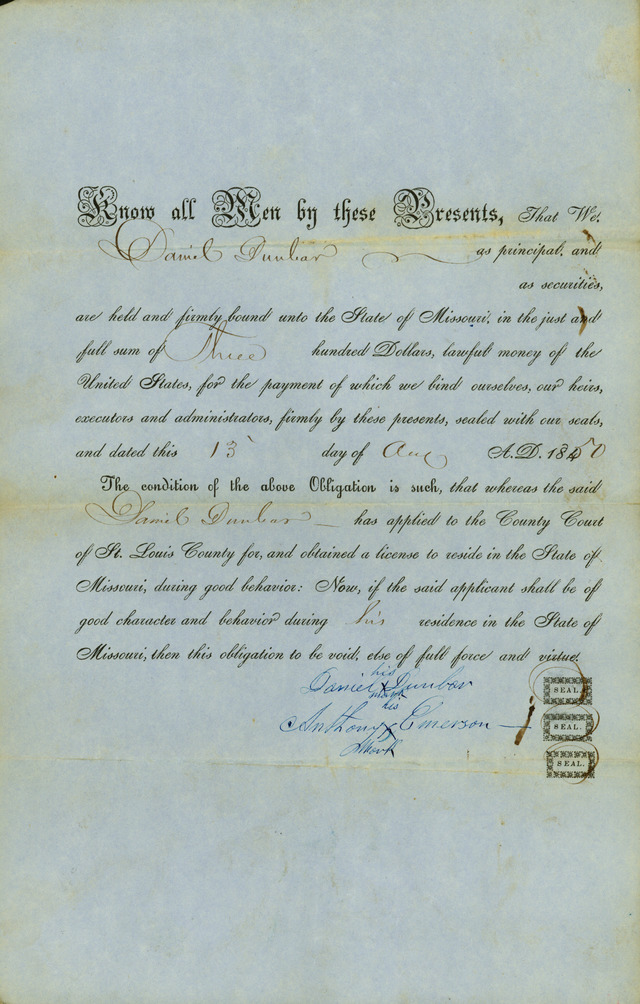 Know all Men by these Presents, That We,
Daniel Dunbar as principal, and
as securities,
are held and firmly bound unto the State of Missouri, in the just and
full sum of Three hundred Dollars, lawful money of the
United States, for the payment of which we bind ourselves, our heirs,
executors and administrators, firmly by these presents, sealed with our seals,
and dated this 13 day of Aug A.D. 1850
The condition of the above Obligation is such, that whereas the said
Daniel Dunbar has applied to the County Court
of St. Louis County for, and obtained a license to reside in the State of
Missouri, during good behavior: Now, if the said applicant shall be of
good character and behavior during his residence in the State of
Missouri, then this obligation to be void, else of full force and virtue.
his
Daniel X Dunbar SEAL.
mark
his
Anthony X Emerson SEAL.
Mark
SEAL.